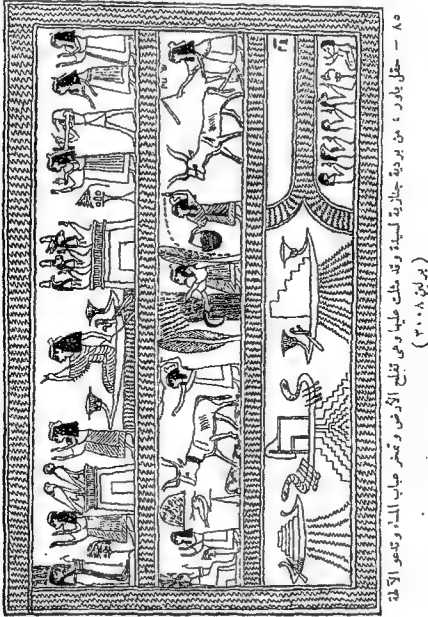 ٨٥ – حقل يارو ؛ من بردية جنازية لسيدة وقد مثلت عليها وهى تفلح الأرض وتمخر عباب الماء وتدعو الآلهة
( برلين ٣٠٠٨ )